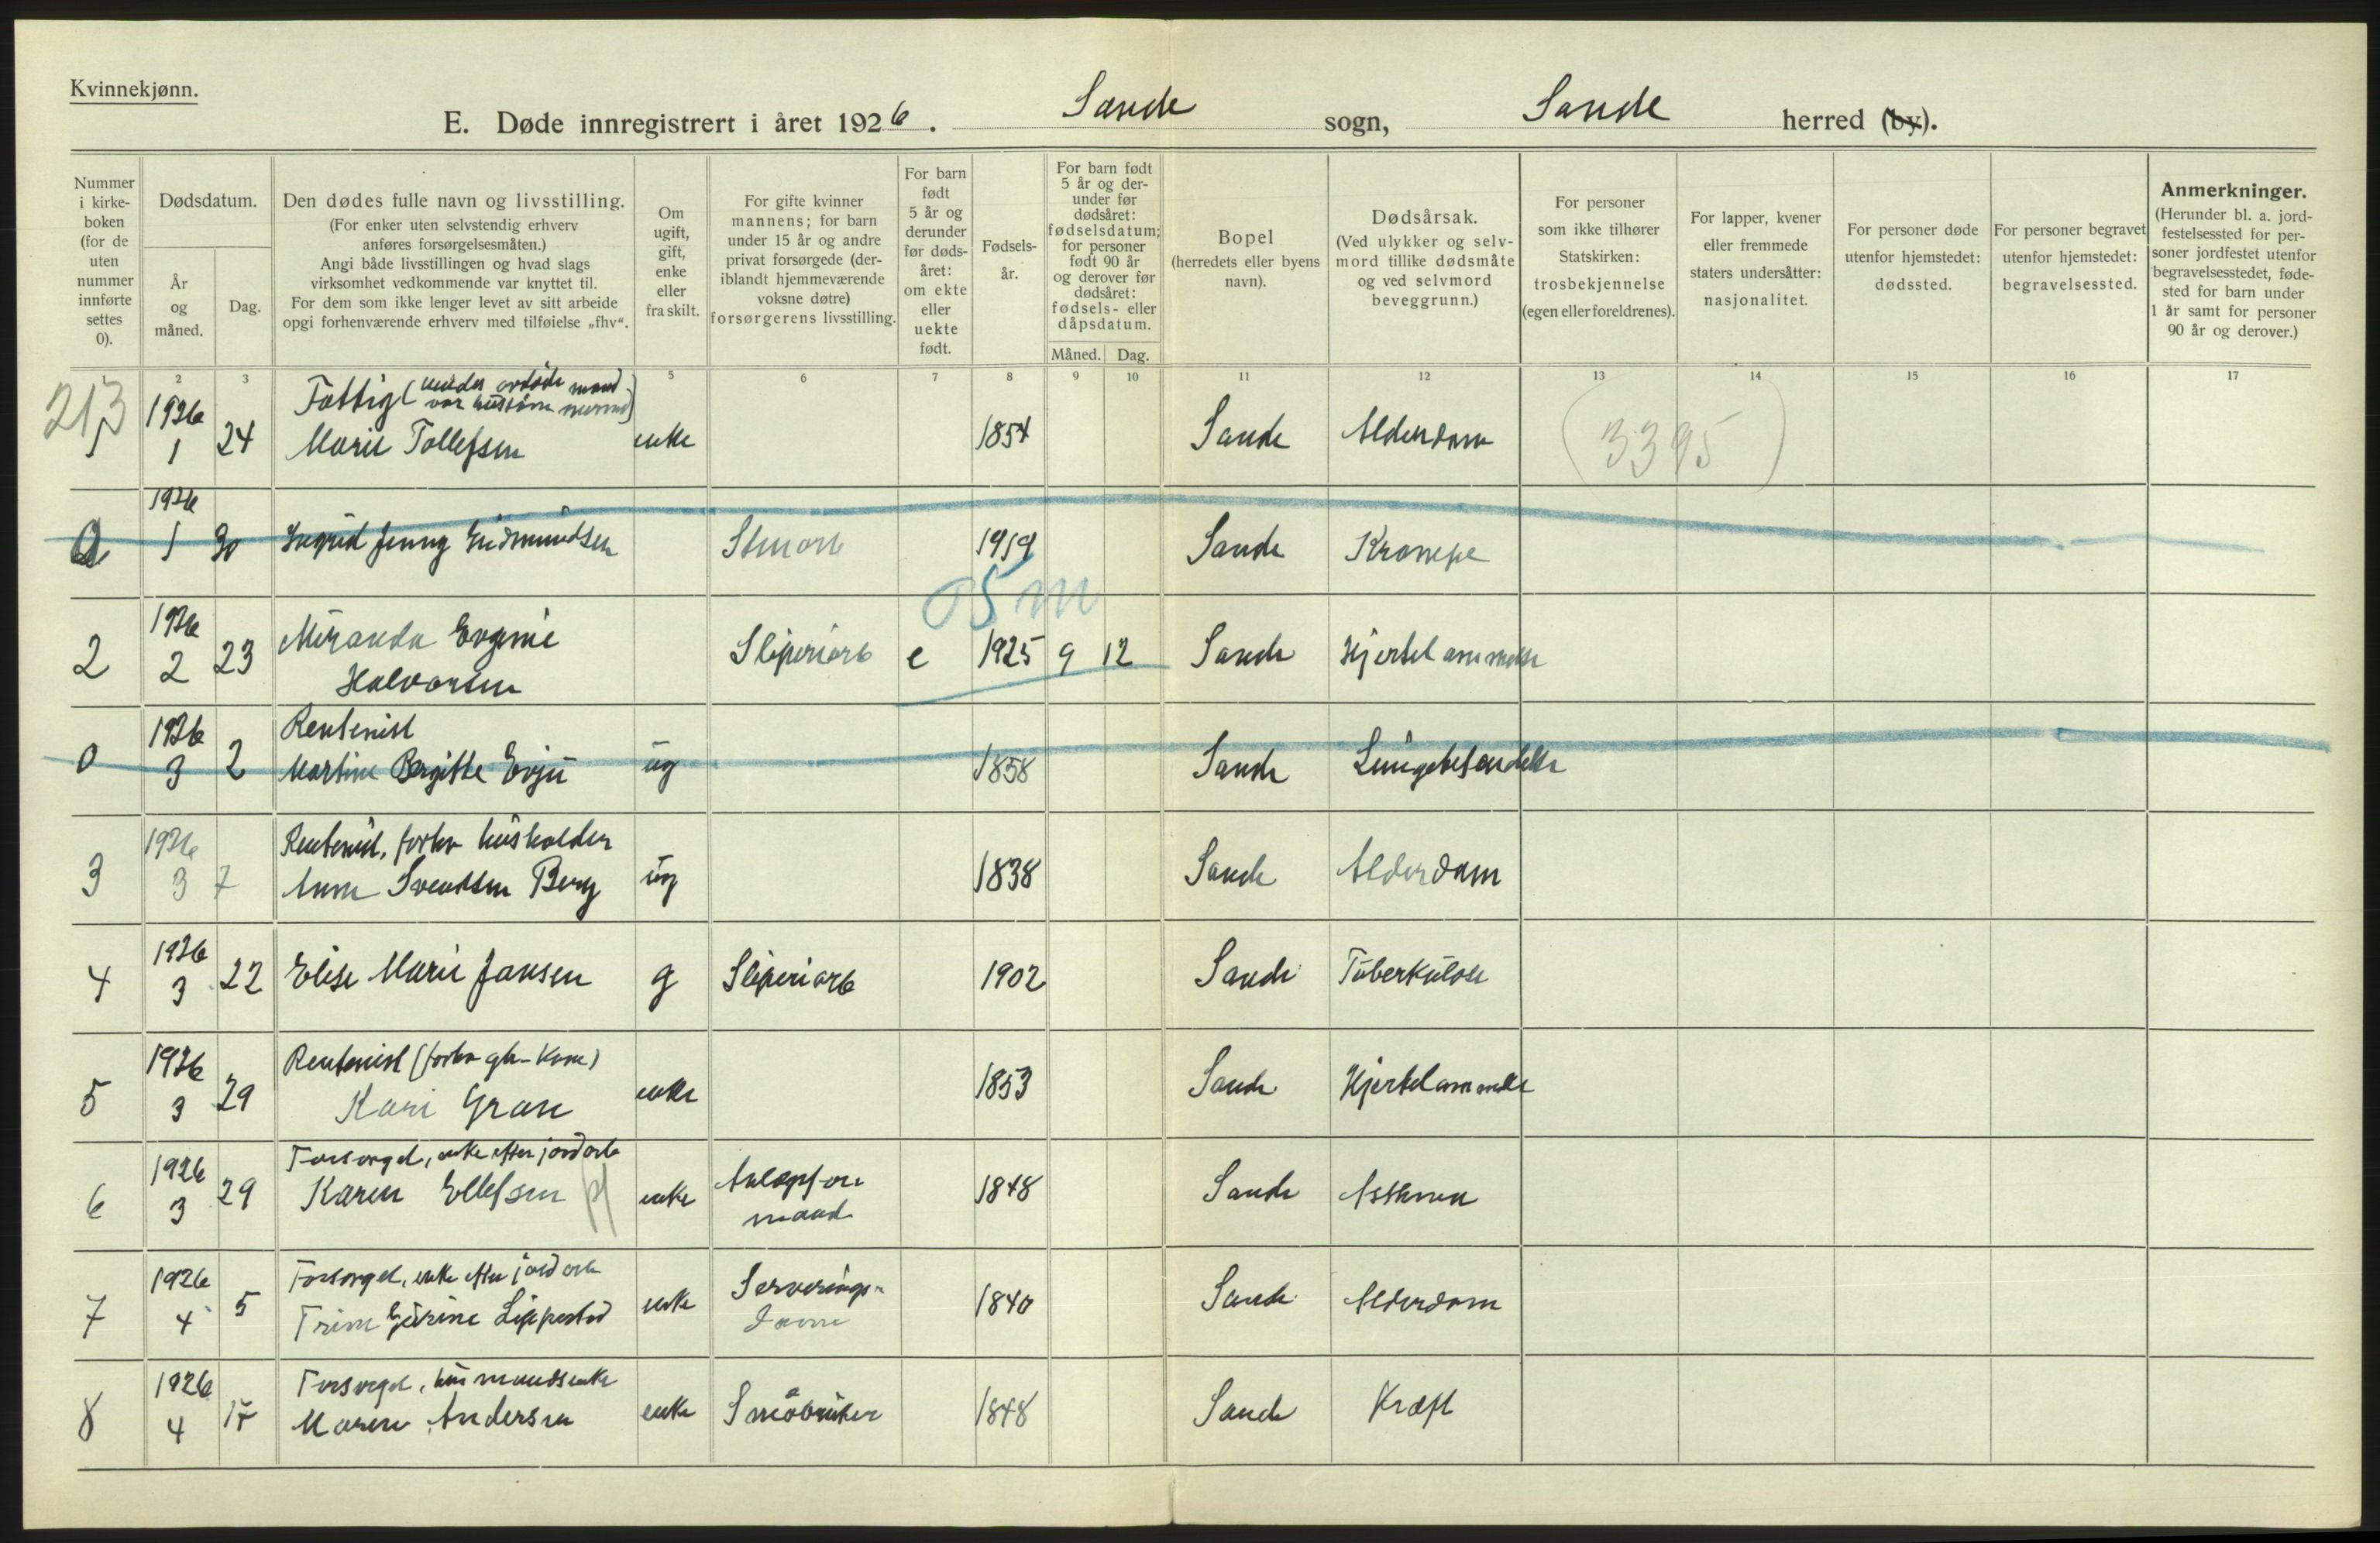 Kvinnekjønn.
E. Døde innregistrert i året 1926. Sande sogn, Sande herred (by).
Nummer i kirke-boken (for de uten nummer innførte settes 0).
Dødsdatum.
År og måned.
Dag.
Den dødes fulle navn og livsstilling.
(For enker uten selvstendig erhverv anføres forsørgelsesmåten.)
Angi både livsstillingen og hvad slags virksomhet vedkommende var knyttet til.
For dem som ikke lenger levet av sitt arbeide opgi forhenværende erhverv med tilføielse „fhv“.
Om ugift, gift, enke eller fraskilt.
For gifte kvinner mannens; for barn under 15 år og andre privat forsørgede (der-iblandt hjemmeværende voksne døtre) forsørgerens livsstilling.
For barn født 5 år og derunder før døds-året: om ekte eller uekte født.
Fødsels-år.
For barn født 5 år og der-under før dødsåret: fødselsdatum; for personer født 90 år og derover før dødsåret: fødsels- eller dåpsdatum.
Måned. Dag.
Bopel (herredets eller byens navn).
Dødsårsak. (Ved ulykker og selv-mord tillike dødsmåte og ved selvmord beveggrunn.)
For personer som ikke tilhører Statskirken: trosbekjennelse (egen eller foreldrenes).
For lapper, kvener eller fremmede staters undersåtter: nasjonalitet.
For personer døde utenfor hjemstedet: dødssted.
For personer begravet utenfor hjemstedet: begravelsessted.
Anmerkninger.
(Herunder bl. a. jord-festelsessted for per-soner jordfestet utenfor begravelsesstedet, føde-sted for barn under 1 år samt for personer 90 år og derover.)
1 2 3 5 6 7 8 9 10 11 12 13 14 15 16 17
213
1926 Fattig (
1 1 24 Marie Tollefsen enke 1854 Sande Alderdom (3395)
1926
0 1 30 Ingrid Jenny Gudmundsen 1919 Sande Kronepe
05 m
1926 Miranda Evgenie
2 2 23 Halvorsen Sliperiarb e 1925 9 12 Sande Hjertelammelse
1926 Rentenist
0 3 2 Martine Bergitte Evju ug 1858 Sande Lungebetendelse
1926 Rentenist, forhv husholder
3 3 7 Anne Svendsen Berg ug 1838 Sande Alderdom
1926
4 3 22 Elise Marie Jansen g Sliperiarb 1902 Sande Tuberkulose
1926 Rentenist (forhv gb-kone)
5 3 29 Kari Gran enke 1853 Sande Hjertelammelse
1926 Forsørget, enke efter jordarb
6 3 29 Karen Ellefsen enke mand 1848 Sande Asthma
1926 Forsørget, enke efter jordarb
7 4 5 Gurine Lippestad enke Serverings-
dame 1840 Sande Alderdom
1926 Forsørget, husmandsenke
8 4 17 Maren Andersen enke Småbruker 1848 Sande Kræft